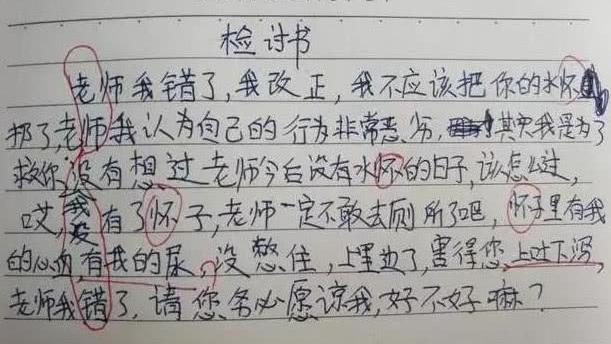 检讨书
老师我错了,我改正,我不应该把你的水怀
扔了老师我认为自己的行为非常恶劣,其实我是为了
救你,没有想过老师今后没有水怀的日子,该怎么过,
哎,我没有了怀子,老师一定不敢去厕所了吧,怀子里有我
的心血,有我的尿,没憋住,上里边了,害得您上吐下泻,
老师我错了,请您务必愿谅我,好不好嘛?